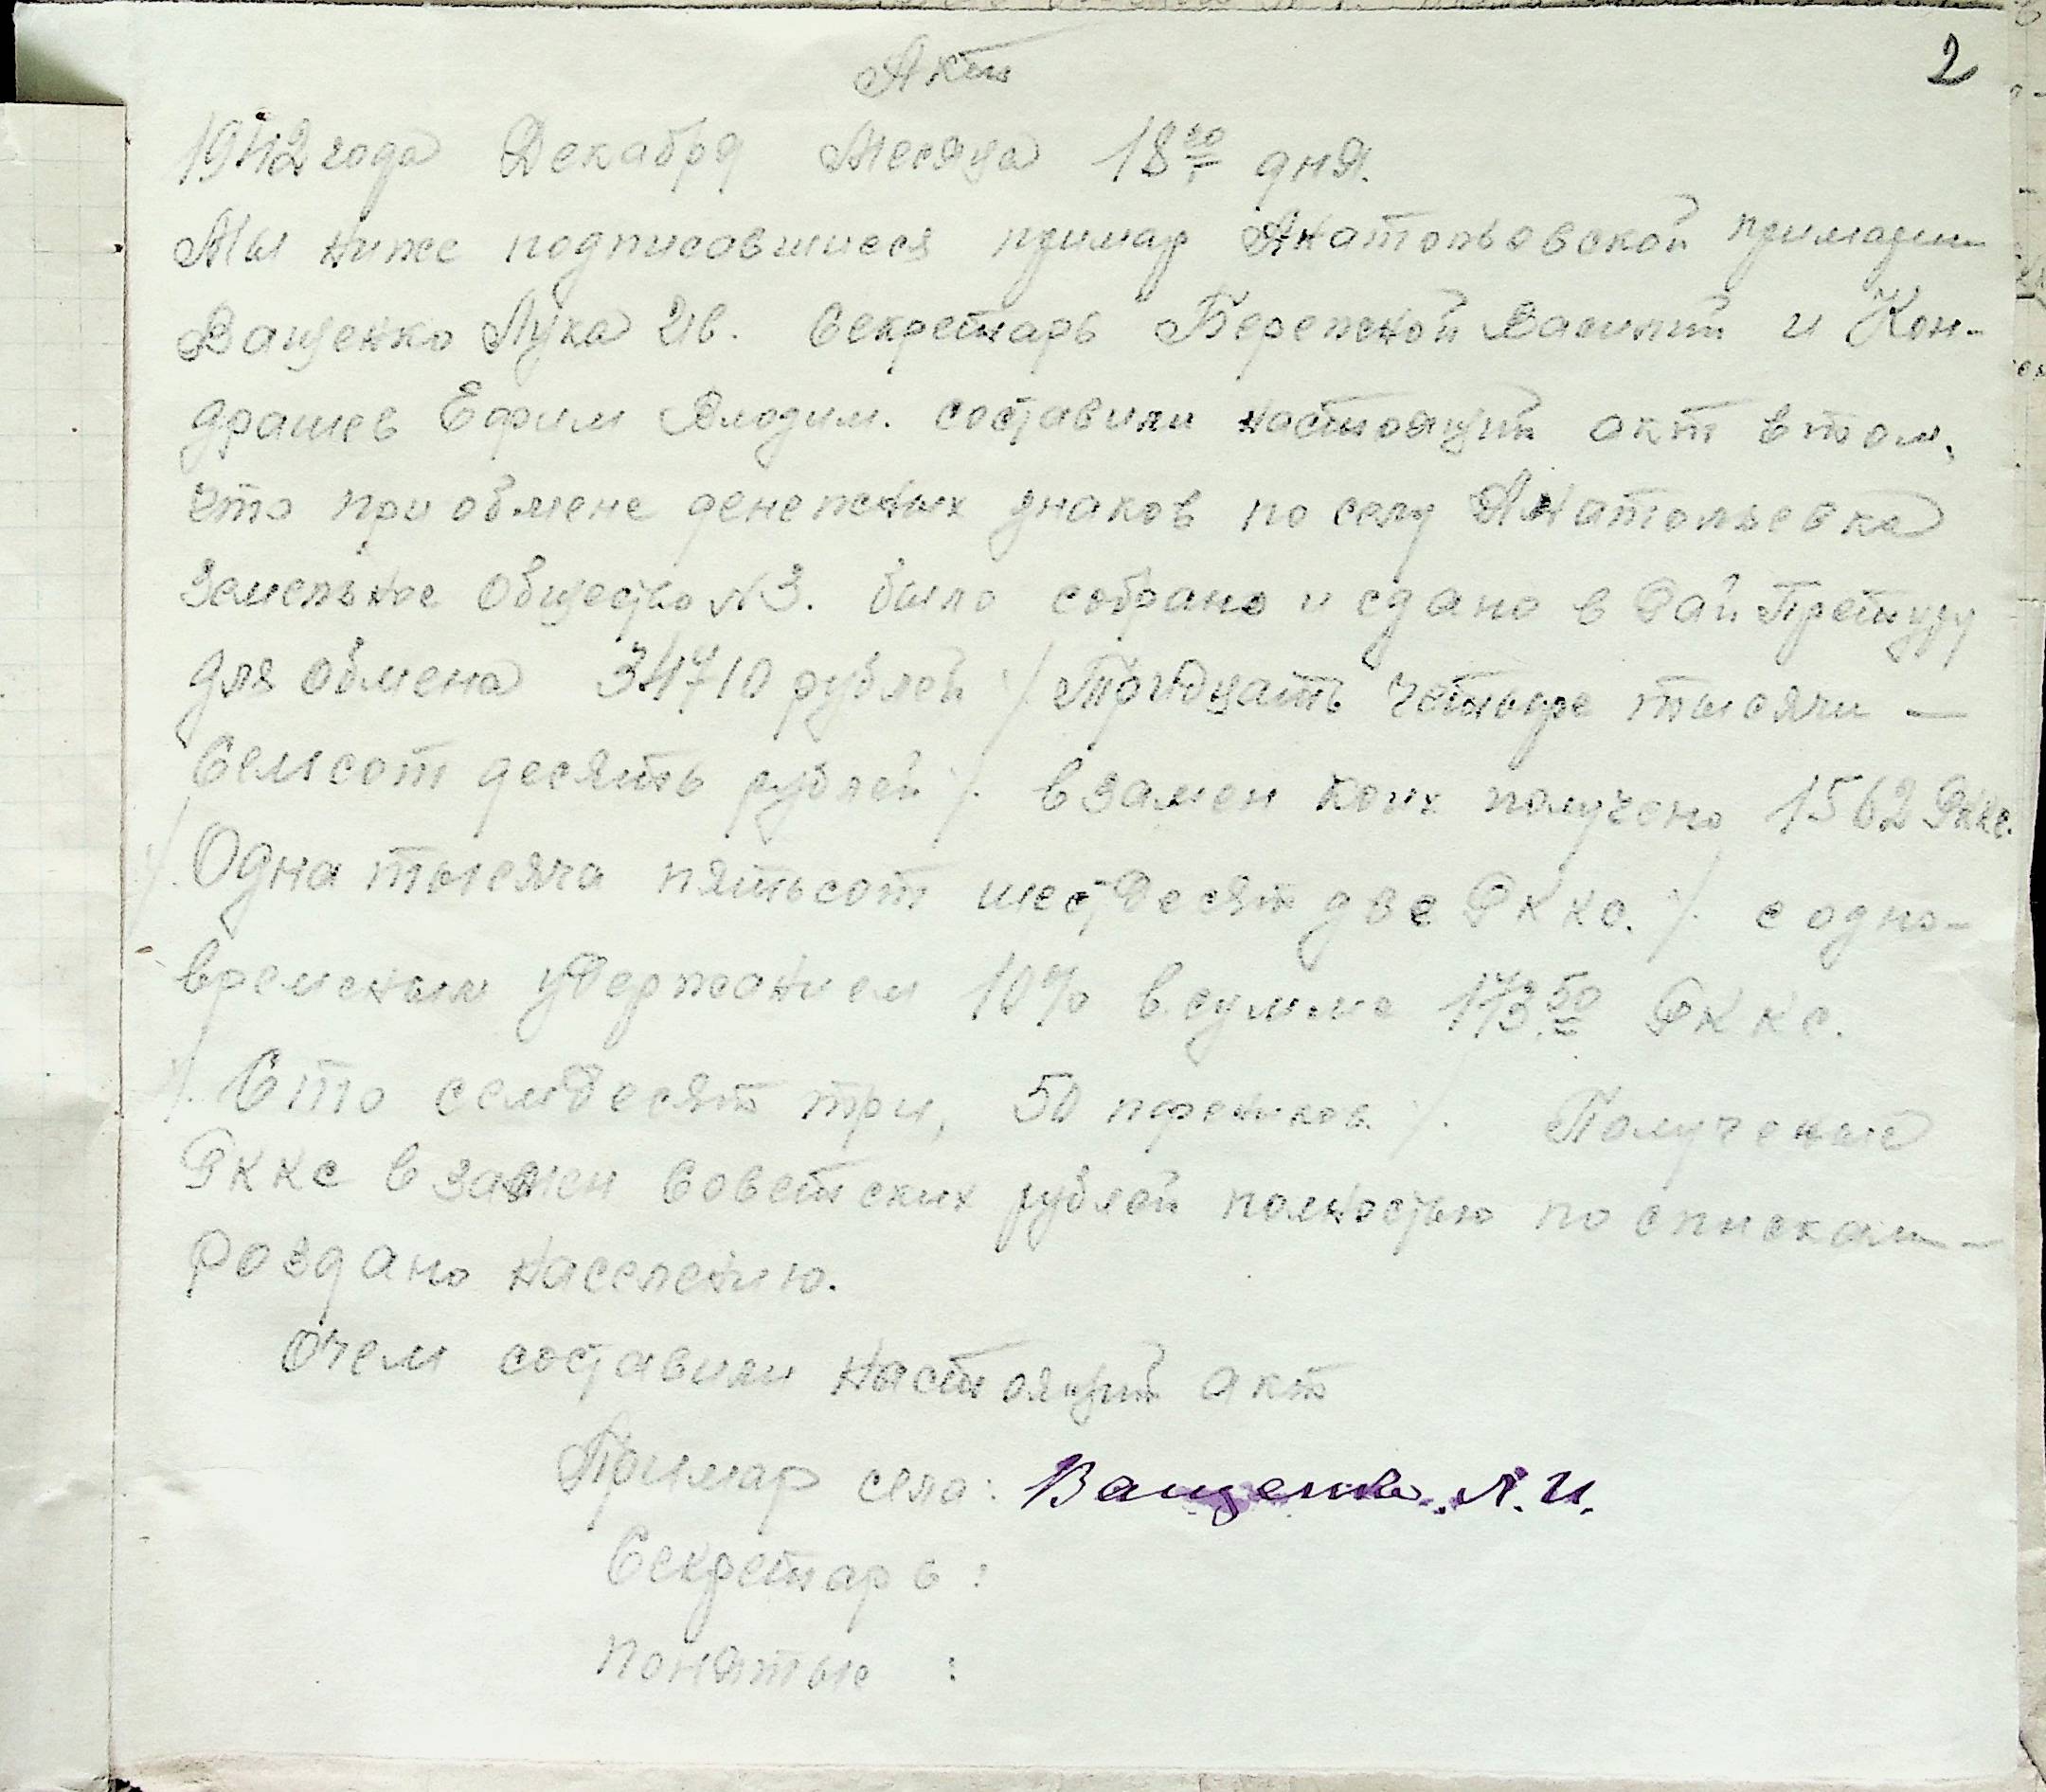 2
Акт
1942 года Декабря Месяца 18го дня.
Мы ниже подписавшиеся примар Анатольовской примарии
Ващенко Лука Ив. Секретарь Бережной Василий и Кон-
драшев Ефим Влодим. составили настоящий акт в том,
что при обмене денежных знаков по селу Анатольевка
Земельное Общество №3. было собрано и сдано в Рай Претуру
для обмена 34710 рублей /. Тридцать четыре тысячи —
Семсот десять рублей /. взамен коих получено 1562 Рккс.
/. Одна тысяча пятьсот шестдесят две Рккс. /. с одно-
временым удержанием 10% в сумме 173.50 Рккс.
/. Сто семдесят три, 50 пфеников /. Полученые
Рккс взамен Советских рублей полностью по спискам —
роздано населению.
О чем составили настоящий акт
Примар села: Ващенко Л. И.
Секретарь :
Понятые :